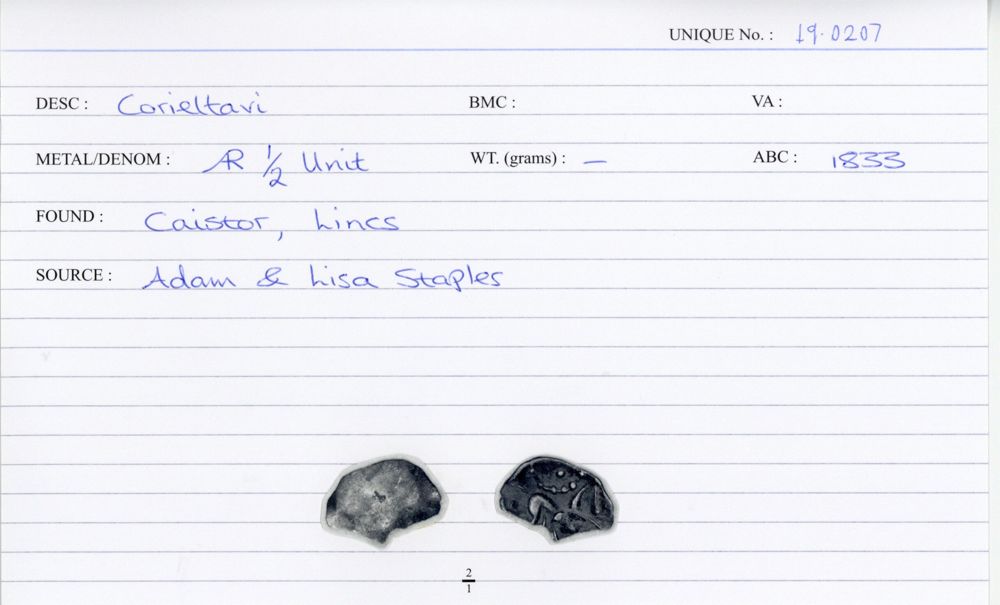 UNIQUE No. : 19.0207
DESC : Corieltavi BMC : VA :
METAL/DENOM : AR 1/2 Unit WT. (grams) : — ABC : 1833
FOUND : Caistor, Lincs
SOURCE : Adam & Lisa Staples
2
1